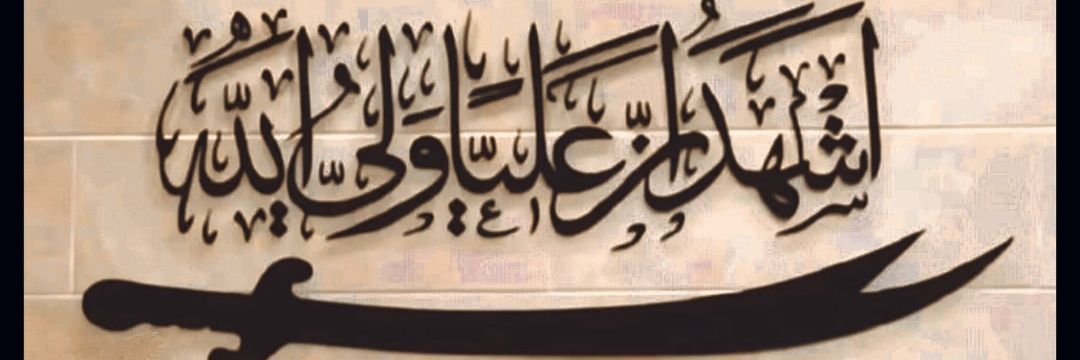 اشهد ان علیاً ولی الله